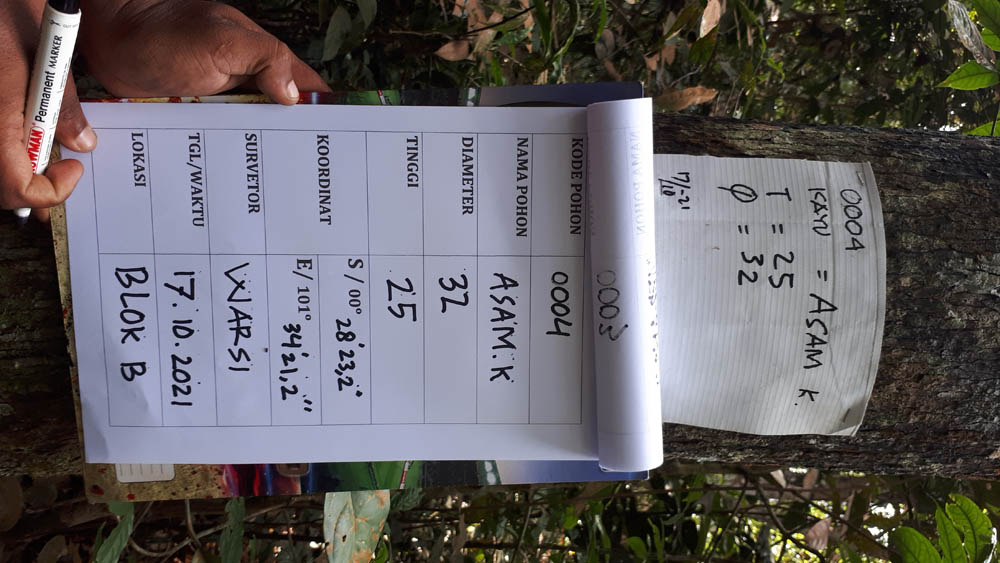 0004
KAYU = ASAM K.
T = 25
Ø = 32
17/10-21
NAMA POHON
0003
KODE POHON 0004
NAMA POHON ASAM.K
DIAMETER 32
TINGGI 25
KOORDINAT S / 00° 28'23,2"
E/ 101° 34'21,2"
SURVETOR WARSI
TGL/WAKTU 17.10.2021
LOKASI BLOK B
SNOWMAN
Permanent MARKER